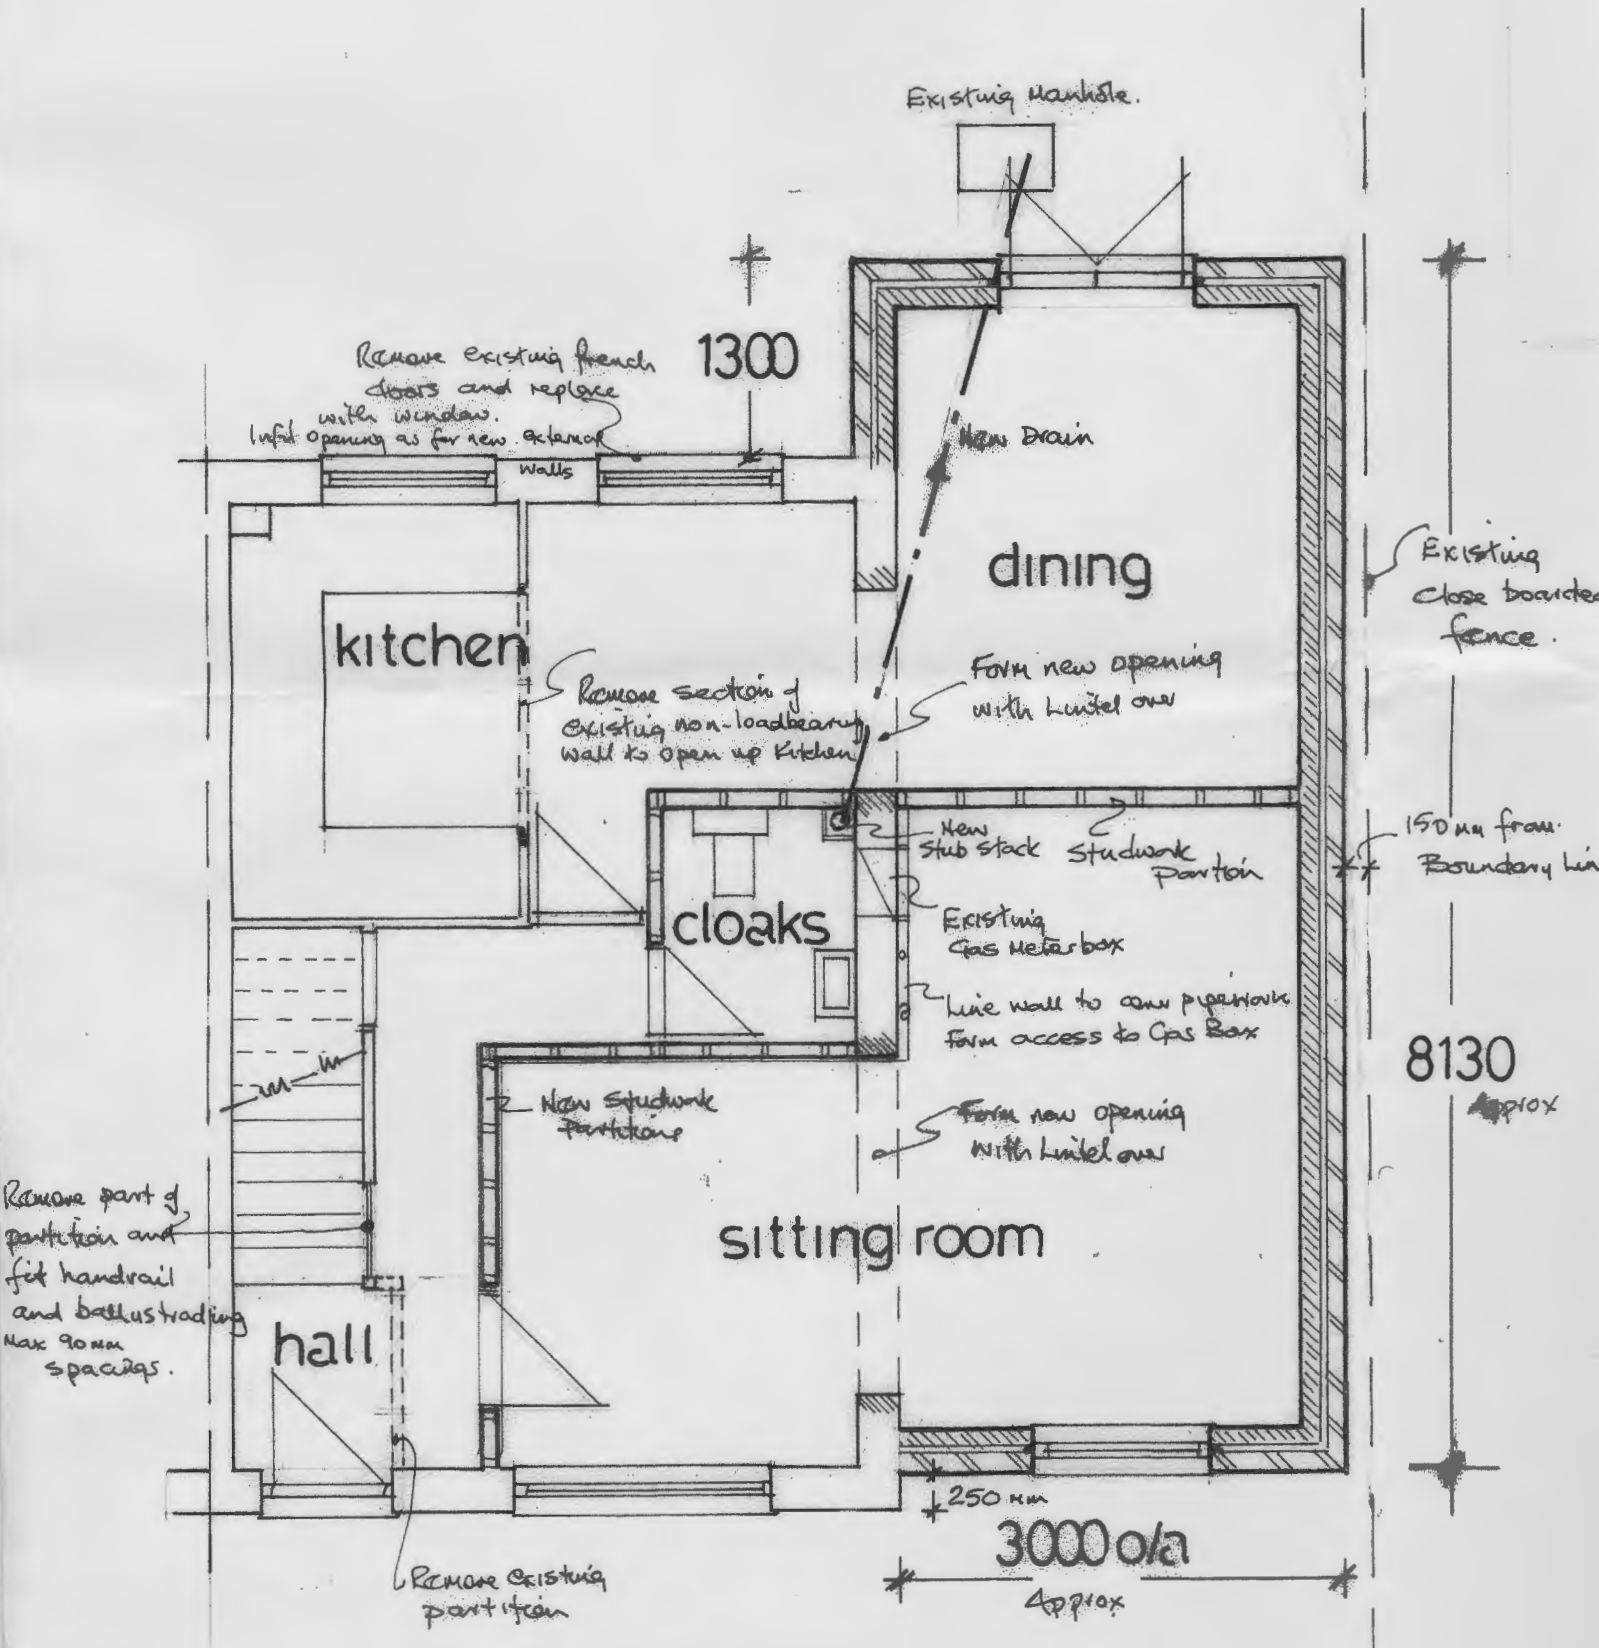 Existing Manhole.
1300
Remove existing french
doors and replace
with window.
Infil opening as for new external
walls
New Drain
dining
Existing
Close boarded
fence.
kitchen
Remove section of
existing non-loadbearing
wall to open up Kitchen
Form new opening
with Lintel over
New
Stub Stack
Studwork
partion
150mm from
Boundary Lin
cloaks
Existing
Gas Meterbox
Line wall to conv pipework
Form access to Gas Box
8130
Approx
New Studwork
Partitions
Form new opening
With Lintel over
Remove part of
partition and
fit handrail
and ballustrading
Max 90mm
spacings.
sitting room
hall
250 mm
3000 o/a
Approx
Remove existing
partition